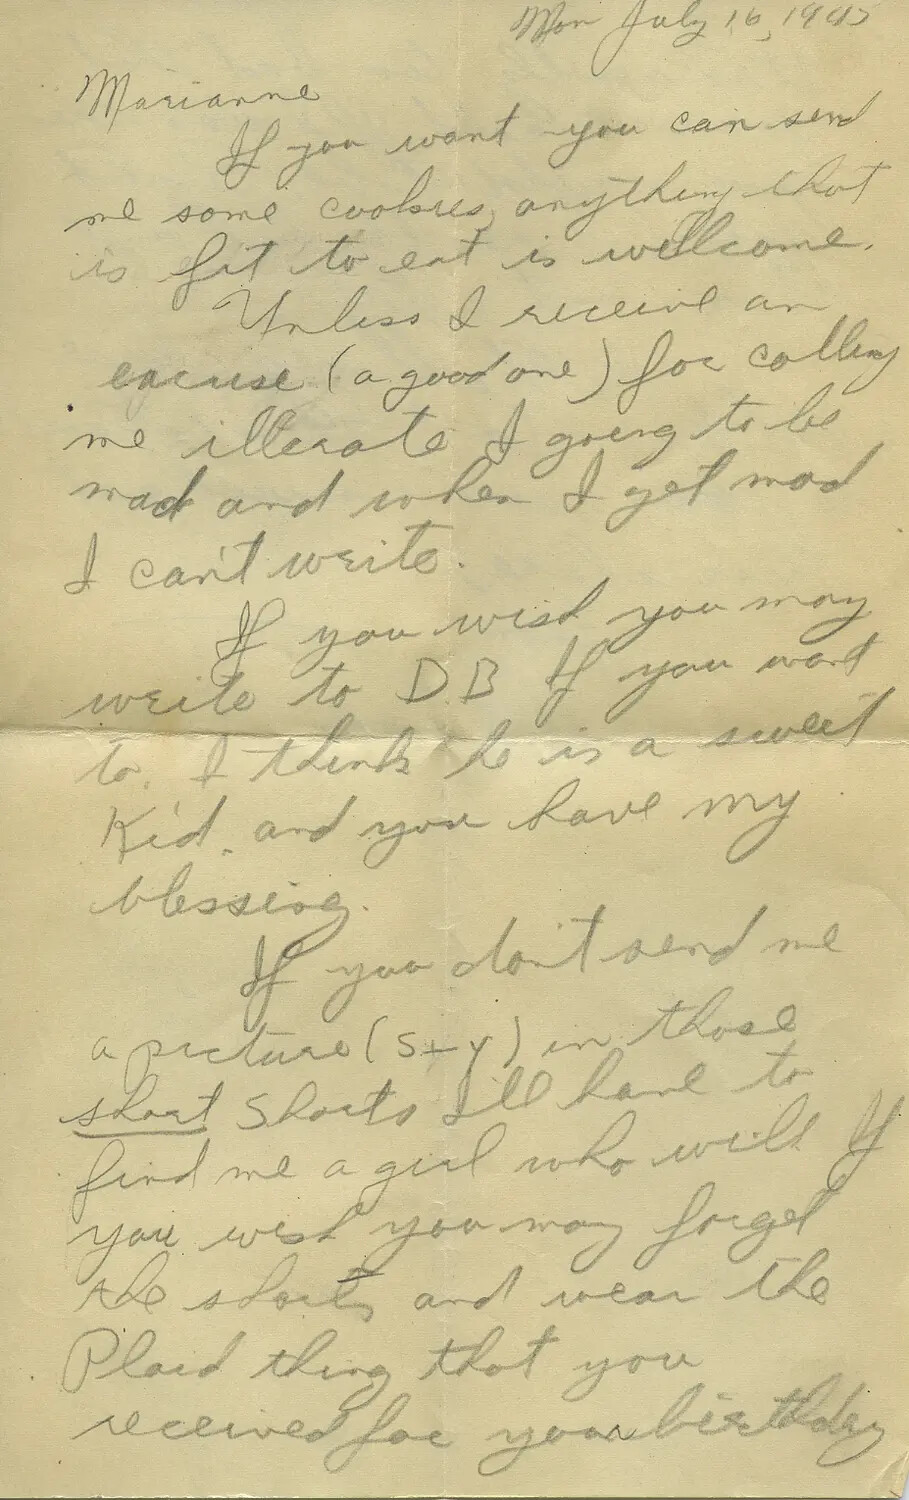 Mon July 16, 1945
Marianne
If you want you can send
me some cookies, anything that
is fit to eat is wellcome.
Unless I receive an
excuse (a good one) for calling
me illerate I going to be
mad and when I get mad
I can't write.
If you wish you may
write to D.B If you want
to. I think he is a sweet
Kid. and you have my
blessing.
If you don't send me
a picture (S+Y) in those
short shorts I'll have to
find me a girl who will If
you wish you may forget
the shorts, and wear the
Plaid thing that you
received for your birthday